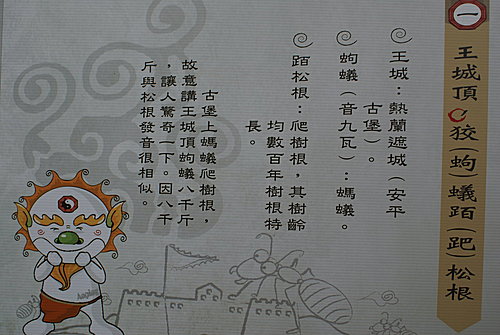 一
王城頂狡(蚼)蟻跖(跁)松根
王城：熱蘭遮城(安平
古堡)。
蚼蟻(音九瓦)：螞蟻。
跖松根：爬樹根，其樹齡
均數百年樹根特
長。
古堡上螞蟻爬樹根，
故意講王城頂蚼蟻八千斤
，讓人驚奇一下。因八千
斤與松根發音很相似。